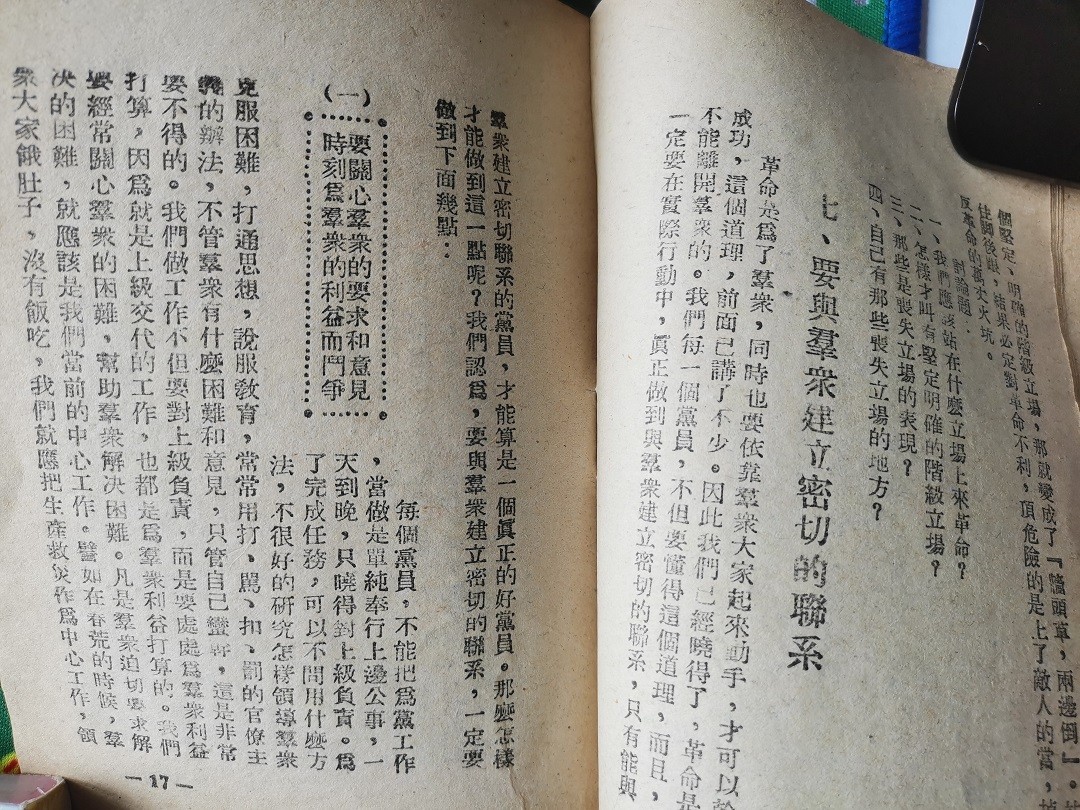 個堅定、明確的階級立場，那就變成了『牆頭草，兩邊倒』。
住脚後跟，結果必定對革命不利，頂危險的是上了敵人的當，
反革命的萬丈火坑。
討論題：
一、我們應該站在什麼立場上來革命？
二、怎樣才叫有堅定明確的階級立場？
三、那些是喪失立場的表現？
四、自己有那些喪失立場的地方？
七、要與羣衆建立密切的聯系
革命是爲了羣衆，同時也要依靠羣衆大家起來動手，才可以
成功，這個道理，前面已講了不少。因此我們已經曉得了，革命是
不能離開羣衆的。我們每一個黨員，不但要懂得這個道理，而且，
一定要在實際行動中，眞正做到與羣衆建立密切的聯系，只有能與
羣衆建立密切聯系的黨員，才能算是一個眞正的好黨員。那麼怎樣
才能做到這一點呢？我們認爲，要與羣衆建立密切的聯系，一定要
做到下面幾點：
（一）
要關心羣衆的要求和意見
時刻爲羣衆的利益而鬥爭
每個黨員，不能把爲黨工作
，當做是單純奉行上邊公事，一
天到晚，只曉得對上級負責。爲
了完成任務，可以不問用什麼方
法，不很好的研究怎樣領導羣衆
克服困難，打通思想，說服敎育，常常用打、罵、扣、罰的官僚主
義的辦法，不管羣衆有什麼困難和意見，只管自己蠻幹，這是非常
要不得的。我們做工作不但要對上級負責，而是要處處爲羣衆利益
打算，因爲就是上級交代的工作，也都是爲羣衆利益打算的。我們
要經常關心羣衆的困難，幫助羣衆解決困難。凡是羣衆迫切要求解
决的困難，就應該是我們當前的中心工作。譬如在春荒的時候，羣
衆大家餓肚子，沒有飯吃，我們就應把生產救災作爲中心工作，領
—17—